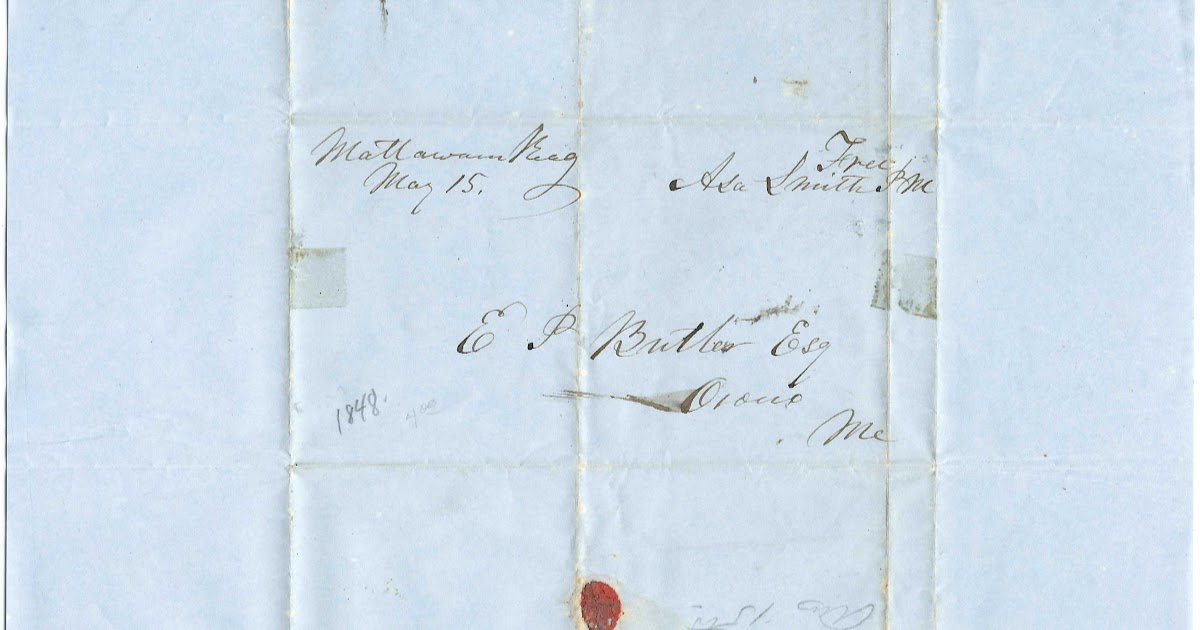 Mattawamkeag
May 15.
Free
Asa Smith PM
E P Butler Esq
Orono
Me
1848.
4.00